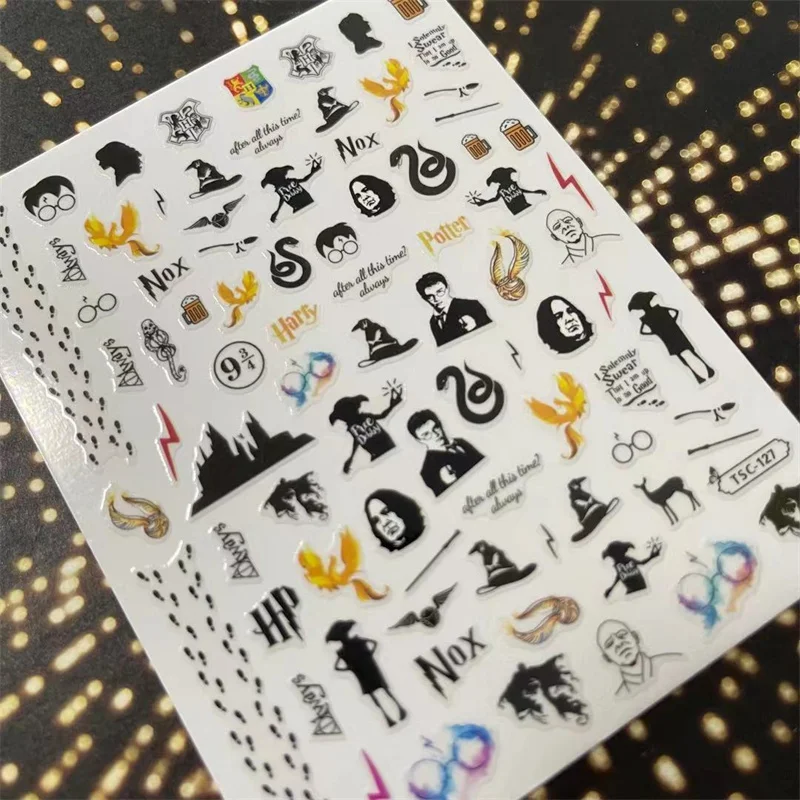 I Solemnly
Swear
That I am up
to no Good
after all this time?
always
Nox
Free
Dobby
Free
Dobby
Always
Nox
Potter
after all this time?
always
Harry
Always
9 3/4
I Solemnly
Swear
That I am up
to no Good
Free
Dobby
TSC-127
after all this time?
always
Always
HP
Free
Dobby
Nox
Always